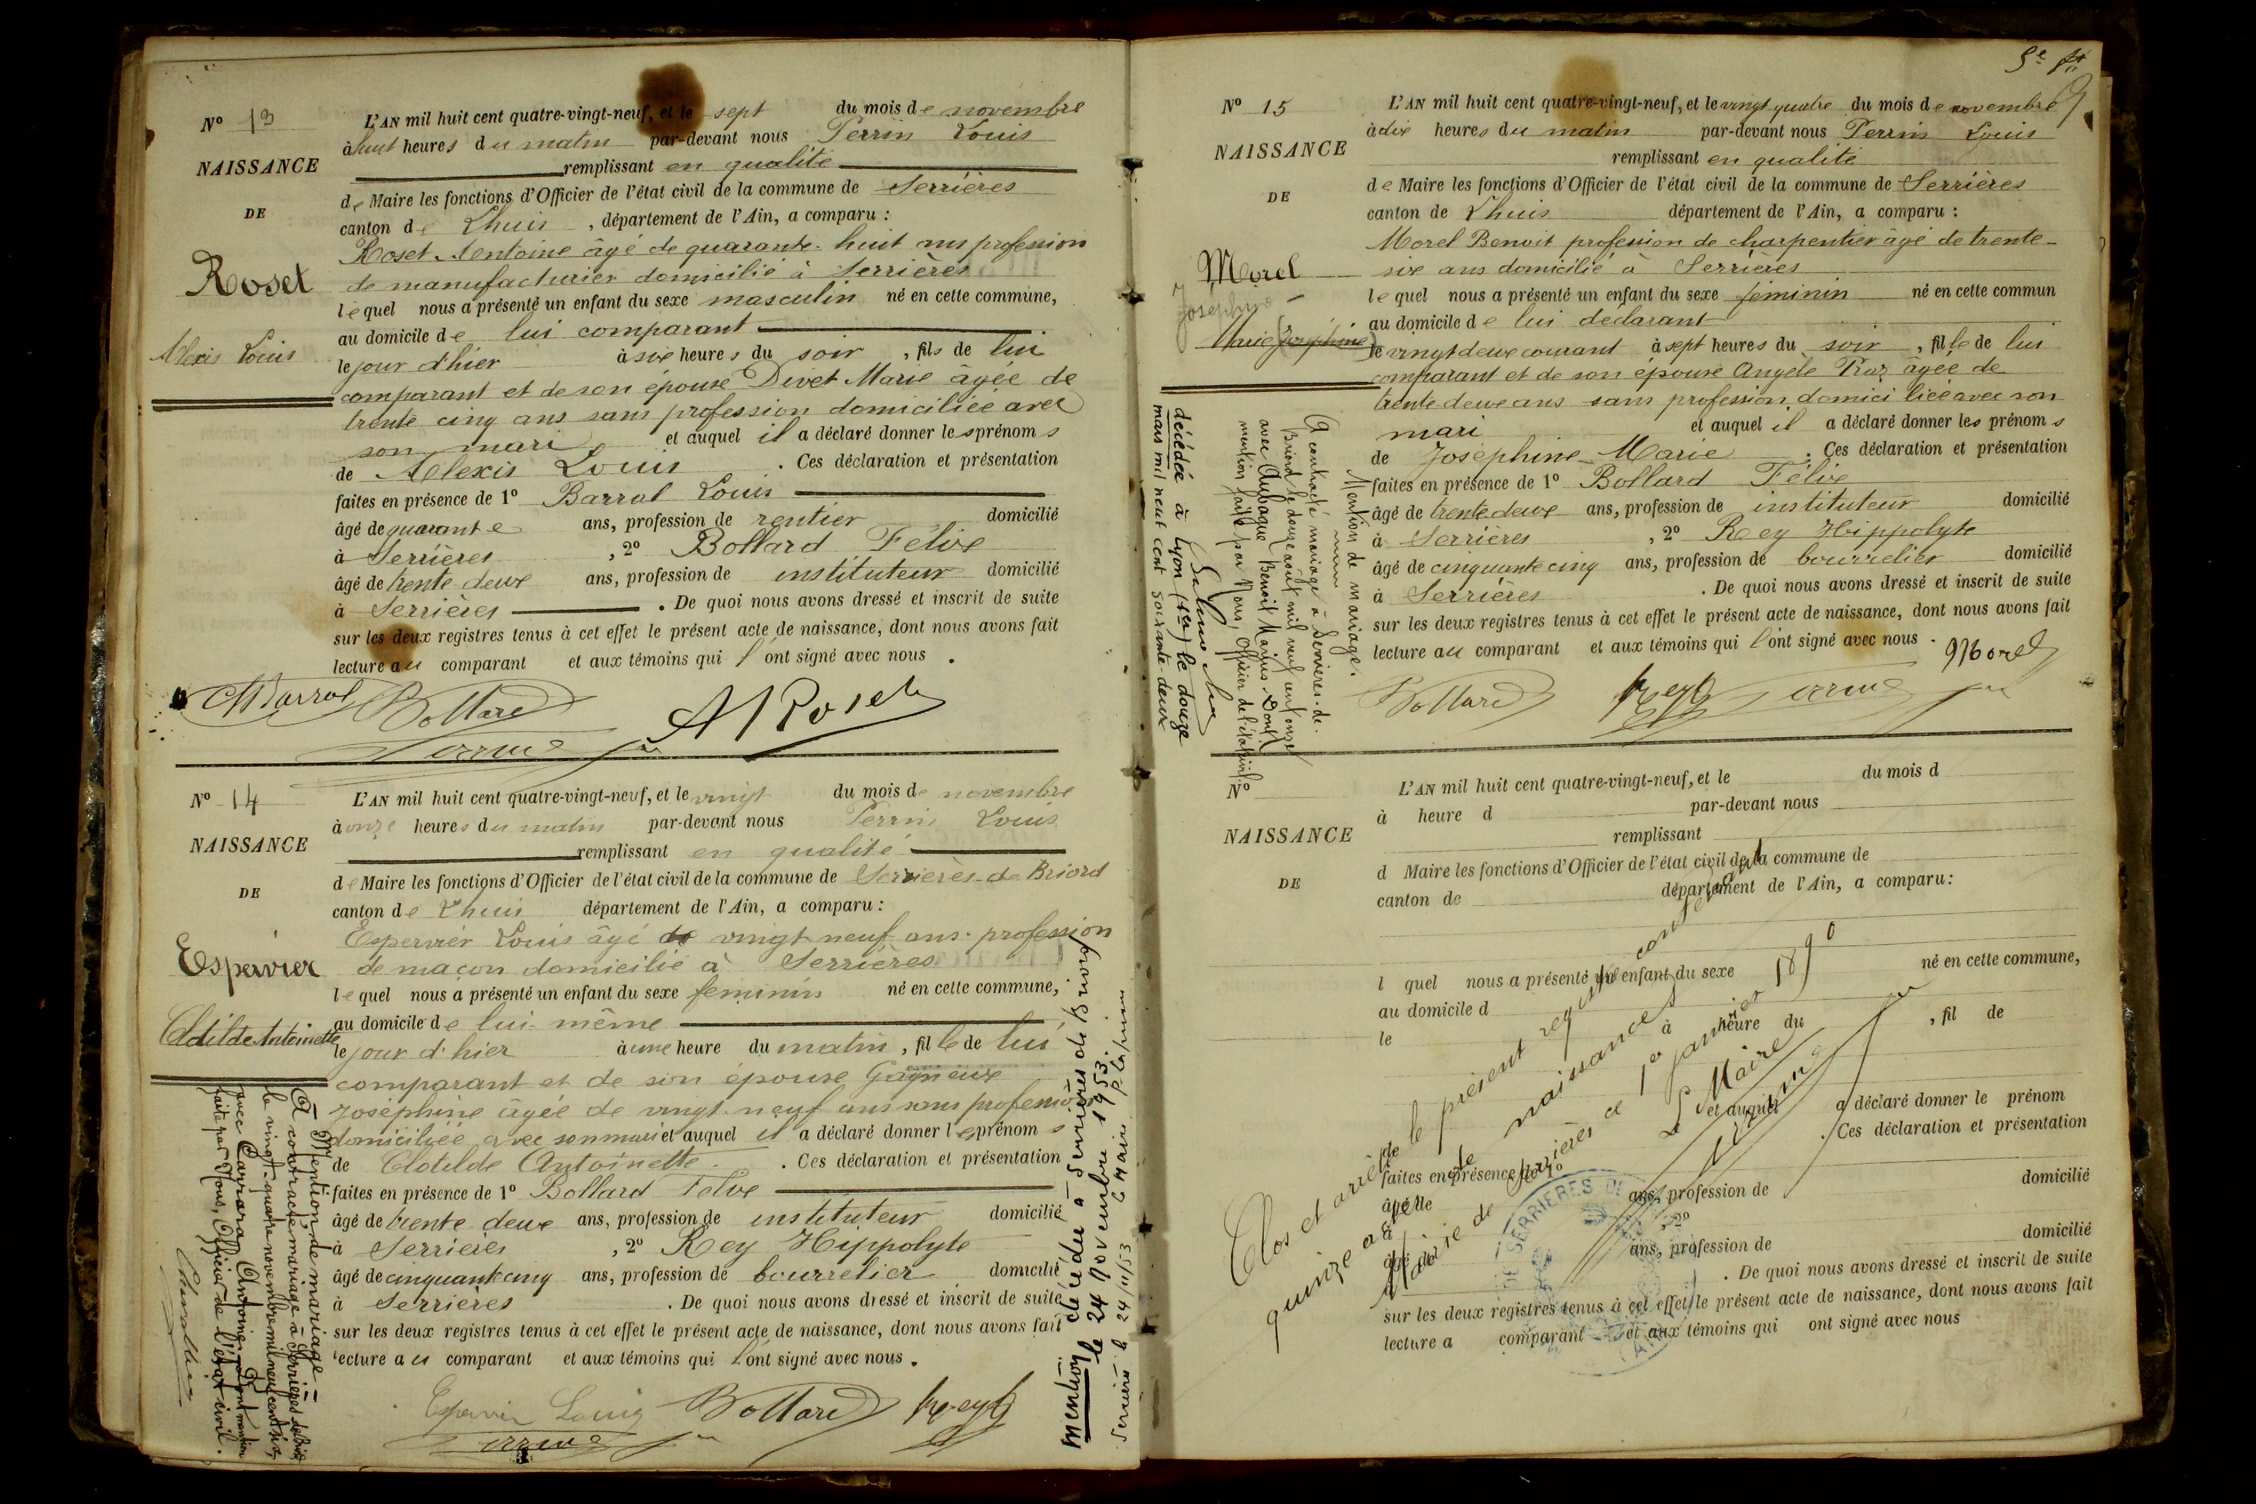 Nº 13
NAISSANCE
DE
Roset
Alexis Louis
L'AN mil huit cent quatre-vingt-neuf, et le sept du mois de novembre
à huit heures du matin par-devant nous Perrin Louis
remplissant en qualité
de Maire les fonctions d'Officier de l'état civil de la commune de Serrières
canton de Lhuis, département de l'Ain, a comparu :
Roset Antoine âgé de quarante-huit ans profession
de manufacturier domicilié à Serrières
lequel nous a présenté un enfant du sexe masculin né en cette commune,
au domicile de lui comparant
le jour d'hier à six heures du soir, fils de lui
comparant et de son épouse Divet Marie âgée de
trente cinq ans sans profession domiciliée avec
son mari et auquel il a déclaré donner les prénoms
de Alexis Louis. Ces déclaration et présentation
faites en présence de 1º Barral Louis
âgé de quarante ans, profession de rentier domicilié
à Serrières, 2º Bollard Félix
âgé de trente deux ans, profession de instituteur domicilié
à Serrières. De quoi nous avons dressé et inscrit de suite
sur les deux registres tenus à cet effet le présent acte de naissance, dont nous avons fait
lecture au comparant et aux témoins qui l'ont signé avec nous.
Barral Bollard A Roset
Perrin
Nº 14
NAISSANCE
DE
Espervier
Clotilde Antoinette
L'AN mil huit cent quatre-vingt-neuf, et le vingt du mois de novembre
à onze heures du matin par-devant nous Perrin Louis
remplissant en qualité
de Maire les fonctions d'Officier de l'état civil de la commune de Serrières-de Briord
canton de Lhuis département de l'Ain, a comparu :
Espervier Louis âgé de vingt neuf ans profession
de maçon domicilié à Serrières
lequel nous a présenté un enfant du sexe feminin né en cette commune,
au domicile de lui même
le jour d'hier à une heure du matin, fille de lui
comparant et de son épouse Gagneux
Joséphine âgée de vingt neuf ans sans profession
domiciliée avec son mari et auquel il a déclaré donner les prénoms
de Clotilde Antoinette. Ces déclaration et présentation
faites en présence de 1º Bollard Félix
âgé de trente deux ans, profession de instituteur domicilié
à Serrières, 2º Rey Hippolyte
âgé de cinquante cinq ans, profession de bourrelier domicilié
à Serrières. De quoi nous avons dressé et inscrit de suite
sur les deux registres tenus à cet effet le présent acte de naissance, dont nous avons fait
lecture au comparant et aux témoins qui l'ont signé avec nous.
Espervier Louis Bollard Rey
Perrin
Mention de mariage
A contracté mariage à Serrières de Briord
le vingt-quatre novembre mil neuf cent
avec Carraraz Antoine, Dont mention
faite par Nous, Officier de l'état civil.
mention décédée à Serrières de Briord
le 24 novembre 1953.
Serrières le 24/11/53 Le Maire
Nº 15
NAISSANCE
DE
Morel
Joséphine
Marie (Joséphine)
L'AN mil huit cent quatre-vingt-neuf, et le vingt quatre du mois de novembre
à dix heures du matin par-devant nous Perrin Louis
remplissant en qualité
de Maire les fonctions d'Officier de l'état civil de la commune de Serrières
canton de Lhuis département de l'Ain, a comparu :
Morel Benoit profession de charpentier âgé de trente-
six ans domicilié à Serrières
lequel nous a présenté un enfant du sexe féminin né en cette commun
au domicile de lui déclarant
le vingt deux courant à sept heures du soir, fille de lui
comparant et de son épouse Angele Roz âgée de
trente deux ans sans profession domiciliée avec son
mari et auquel il a déclaré donner les prénoms
de Joséphine Marie. Ces déclaration et présentation
faites en présence de 1º Bollard Félix
âgé de trente deux ans, profession de instituteur domicilié
à Serrières, 2º Rey Hippolyte
âgé de cinquante cinq ans, profession de bourrelier domicilié
à Serrières. De quoi nous avons dressé et inscrit de suite
sur les deux registres tenus à cet effet le présent acte de naissance, dont nous avons fait
lecture au comparant et aux témoins qui l'ont signé avec nous.
Morel
Bollard Rey Perrin
Mention de mariage.
A contracté mariage à Serrières-de-
Briord le douze août mil neuf cent onze
avec Aubague Benoit Marius. Dont
mention faite par Nous, Officier de l'état civil.
décédée à Lyon (4e) le douze
mars mil neuf cent soixante deux
Nº
NAISSANCE
DE
L'AN mil huit cent quatre-vingt-neuf, et le du mois d
à heure d par-devant nous
remplissant
d Maire les fonctions d'Officier de l'état civil de la commune de
canton de département de l'Ain, a comparu :
l quel nous a présenté un enfant du sexe né en cette commune,
au domicile d
le à heure du, fil de
et auquel a déclaré donner le prénom
de. Ces déclaration et présentation
faites en présence de 1º
âgé de ans, profession de domicilié
à, 2º
âgé de ans, profession de domicilié
à. De quoi nous avons dressé et inscrit de suite
sur les deux registres tenus à cet effet le présent acte de naissance, dont nous avons fait
lecture a comparant et aux témoins qui ont signé avec nous
Clos et arrêté le présent registre contenant
quinze actes de naissances
Mairie de Serrières ce 1er janvier 1890
Le Maire
Perrin
SERRIERES DE